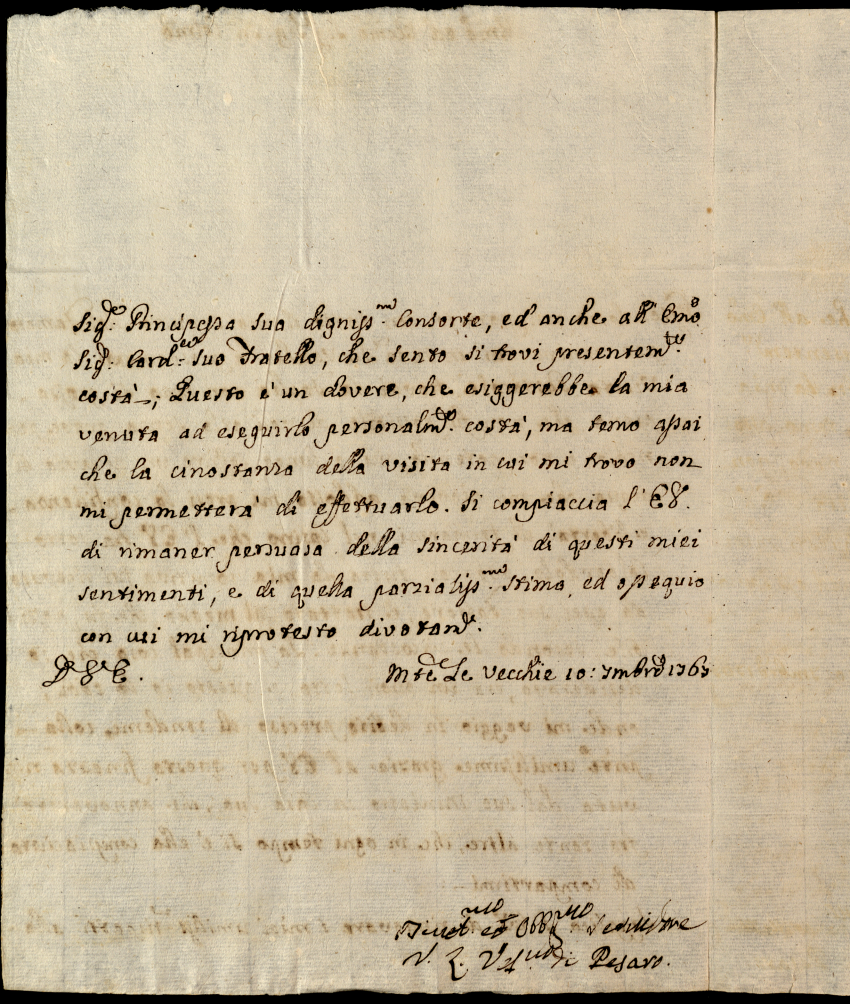 Sig.ra Principessa sua digniss.ma Consorte, ed anche all' Emo
Sig.r Card.e suo Fratello, che sento si trovi presentem.te
costà; Questo è un dovere, che esiggerebbe la mia
venuta ad eseguirlo personalm.te costà, ma temo assai
che la circostanza della visita in cui mi trovo non
mi permetterà di effettuarlo. Si compiaccia l'E.V.
di rimaner persuasa della sincerità di questi miei
sentimenti, e di quella parzialiss.ma stima, ed ossequio
con cui mi riprotesto divotam.te
D. V. E.
Mte Le Vecchie 10: 7mbre 1763
Devot.mo ed Obb.mo Servidore
V. Vesc.vo di Pesaro.